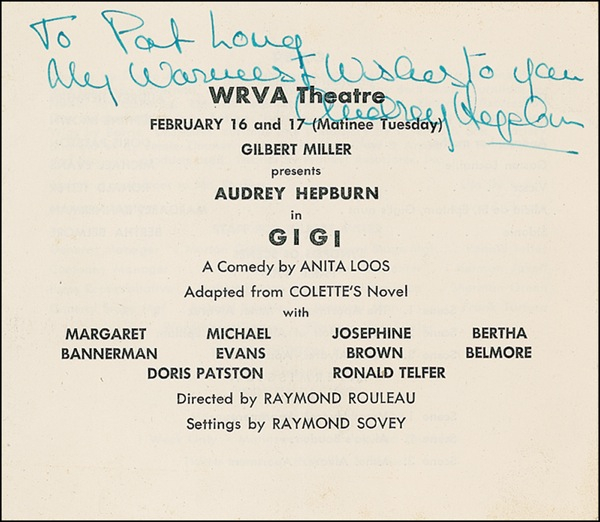 To Pat Long
My Warmest Wishes to you
Audrey Hepburn
WRVA Theatre
FEBRUARY 16 and 17 (Matinee Tuesday)
GILBERT MILLER
presents
AUDREY HEPBURN
in
GIGI
A Comedy by ANITA LOOS
Adapted from COLETTE'S Novel
with
MARGARET BANNERMAN MICHAEL EVANS JOSEPHINE BROWN BERTHA BELMORE
DORIS PATSTON RONALD TELFER
Directed by RAYMOND ROULEAU
Settings by RAYMOND SOVEY